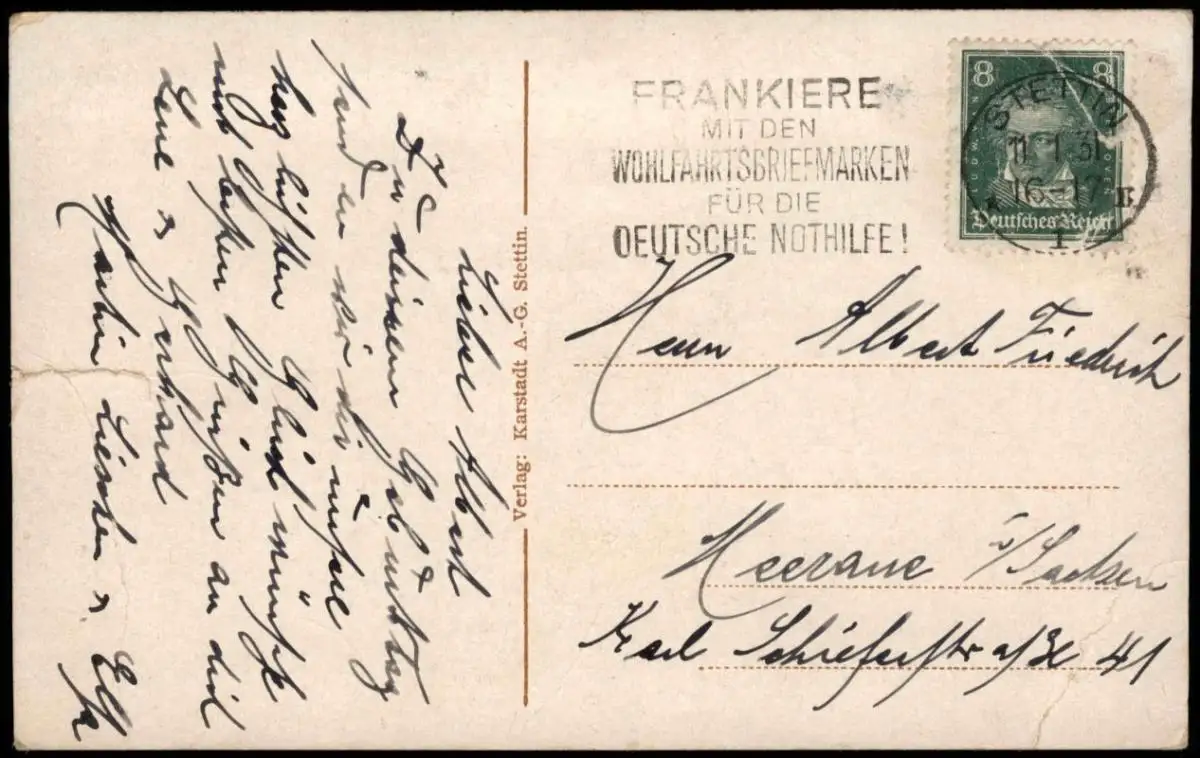 Lieber Albert
Zu deinem Geburtstag
senden wir dir unsere
herzlichsten Glückwünsche
mit besten Grüßen an dich
Lene u. Gerhard
Martin Lieschen u. Elsa
Verlag: Karstadt A.-G. Stettin.
FRANKIERE
MIT DEN
WOHLFAHRTSBRIEFMARKEN
FÜR DIE
DEUTSCHE NOTHILFE!
8 8
Deutsches Reich
STETTIN
11.1.31
16-17
* 1 E
Herrn Albert Friedrich
Meerane i/Sachsen
Karl Schieferstr 41